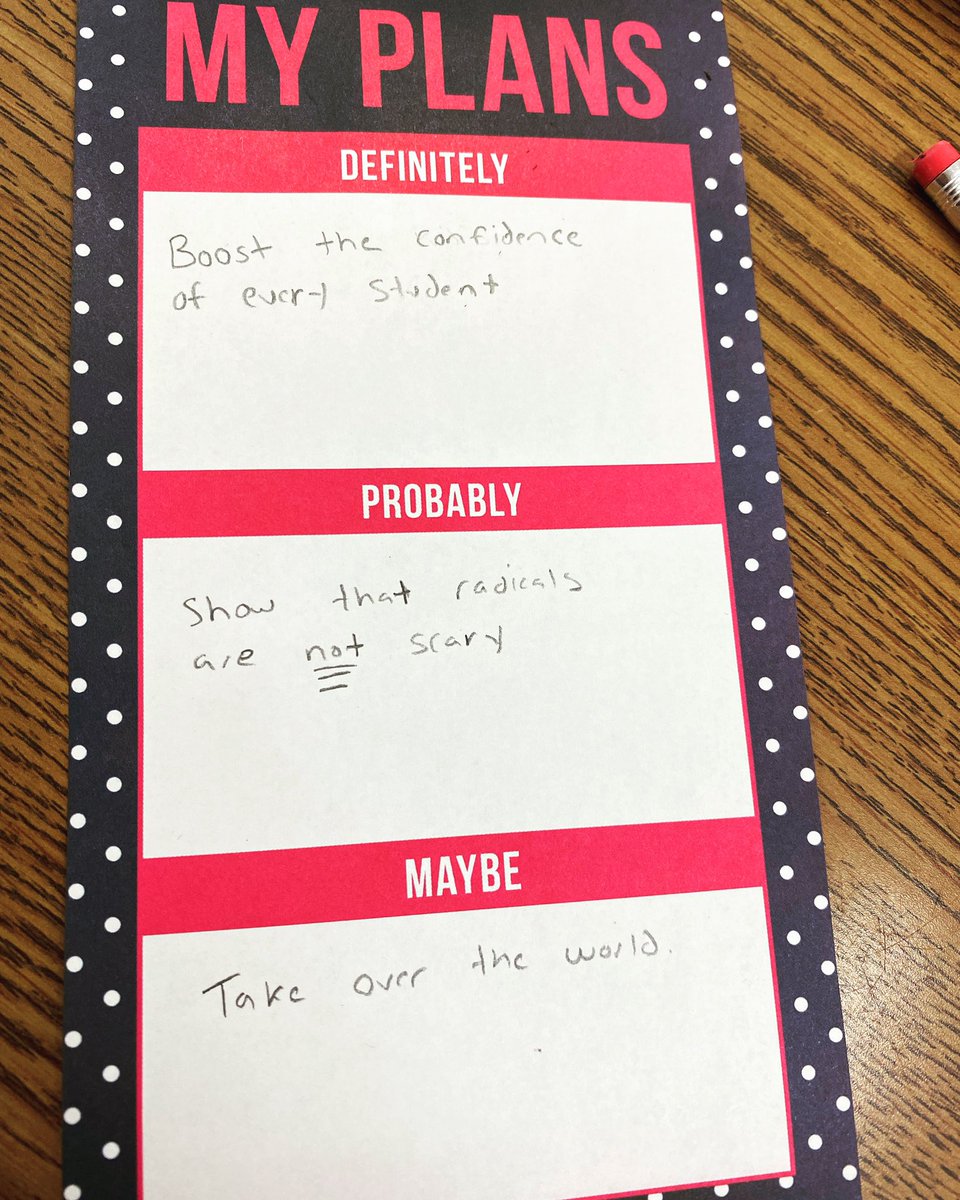 MY PLANS
DEFINITELY
Boost the confidence
of every student
PROBABLY
Show that radicals
are not scary
MAYBE
Take over the world.